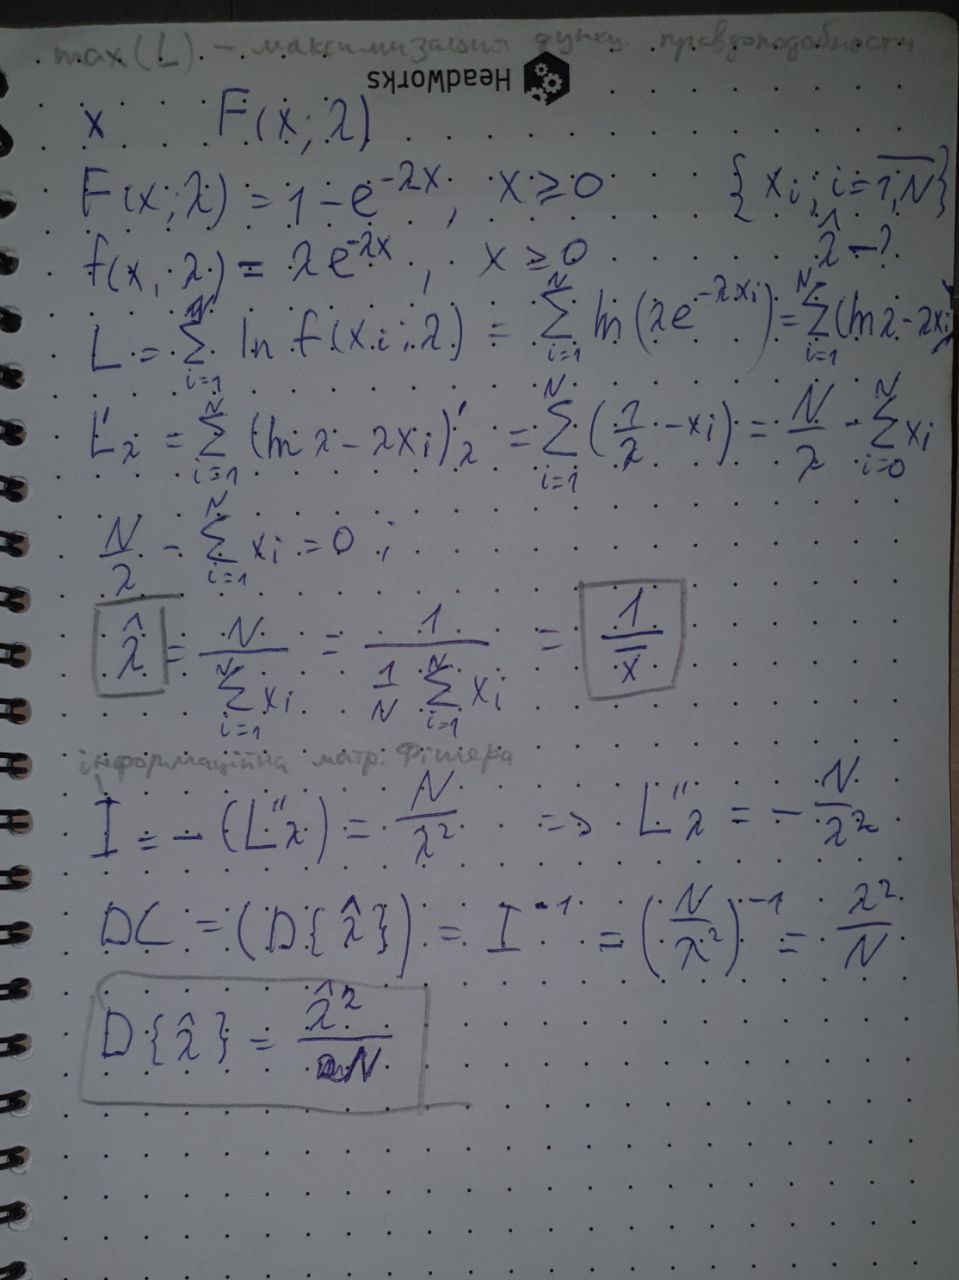 max(L) - максимизация функц. правдоподобности
HeadWorks
x F(x; λ)
F(x; λ) = 1 - e^{-λx}, x ≥ 0 {x_i, i = \overline{1,N}}
f(x, λ) = λe^{-λx}, x ≥ 0 \hat{λ} - ?
L = \sum_{i=1}^{N} ln f(x_i; λ) = \sum_{i=1}^{N} ln(λe^{-λx_i}) = \sum_{i=1}^{N} (ln λ - λx_i)
L'_λ = \sum_{i=1}^{N} (ln λ - λx_i)'_λ = \sum_{i=1}^{N} (\frac{1}{λ} - x_i) = \frac{N}{λ} - \sum_{i=0}^{N} x_i
\frac{N}{λ} - \sum_{i=1}^{N} x_i = 0;
\hat{λ} = \frac{N}{\sum_{i=1}^{N} x_i} = \frac{1}{\frac{1}{N} \sum_{i=1}^{N} x_i} = \frac{1}{\overline{x}}
інформаційна матр. Фішера
I = -(L''_λ) = \frac{N}{λ^2} => L''_λ = -\frac{N}{λ^2}
DC = (D{\hat{λ}}) = I^{-1} = (\frac{N}{λ^2})^{-1} = \frac{λ^2}{N}
D{\hat{λ}} = \frac{\hat{λ}^2}{N}